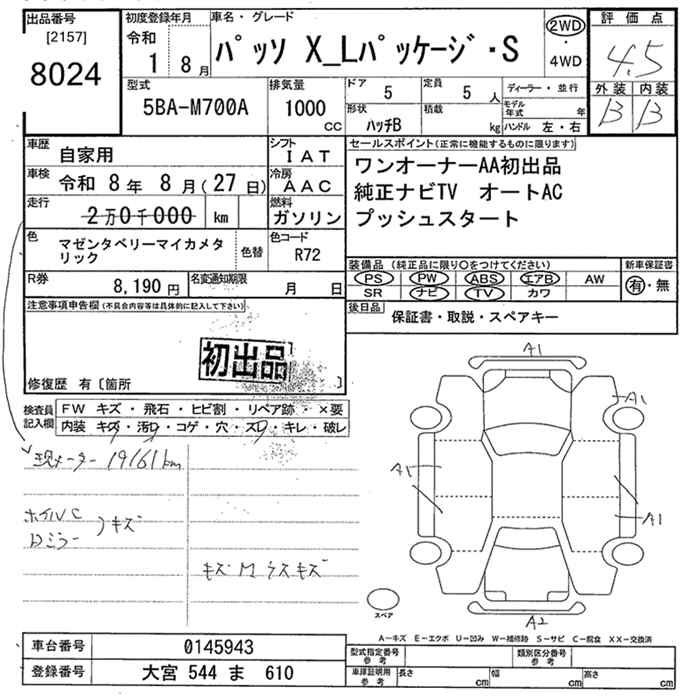 出品番号
[2157]
8024
初度登録年月
令和
1 8月
車名・グレード
パッソ X_Lパッケージ・S
2WD
・
4WD
評価点
4.5
外装 内装
B B
型式
5BA-M700A
排気量
1000
CC
ドア
5
定員
5 人
形状
ハッチB
積載
kg
ディーラー・並行
モデル年式 年
ハンドル 左・右
車歴
自家用
シフト
IAT
車検
令和 8年 8月(27日)
冷房
AAC
走行
2万0千000 km
燃料
ガソリン
色
マゼンタベリーマイカメタリック
色替
色コード
R72
R券
8,190円
名変通知期限
月 日
セールスポイント(正常に機能するものに限ります)
ワンオーナーAA初出品
純正ナビTV オートAC
プッシュスタート
装備品(純正品に限り○をつけてください)
PS PW ABS エアB AW
SR ナビ TV カワ
新車保証書
有・無
後日品
保証書・取説・スペアキー
注意事項申告欄(不具合内容等は具体的に記入して下さい)
初出品
修復歴 有〔箇所 〕
検査員
記入欄
FW キズ・飛石・ヒビ割・リペア跡・×要
内装 キズ・汚レ・コゲ・穴・スレ・キレ・破レ
現メーター 19161km
ホイルC
Dミラー
)キズ
キズ M ウスキズ
A1
A1
A1
A1
A2
スペア
A-キズ E-エクボ U-凹み W-補修跡 S-サビ C-腐食 XX-交換済
車台番号
0145943
登録番号
大宮 544 ま 610
型式指定番号
参考
類別区分番号
参考
車庫証明用
参考
長さ cm
幅 cm
高さ cm